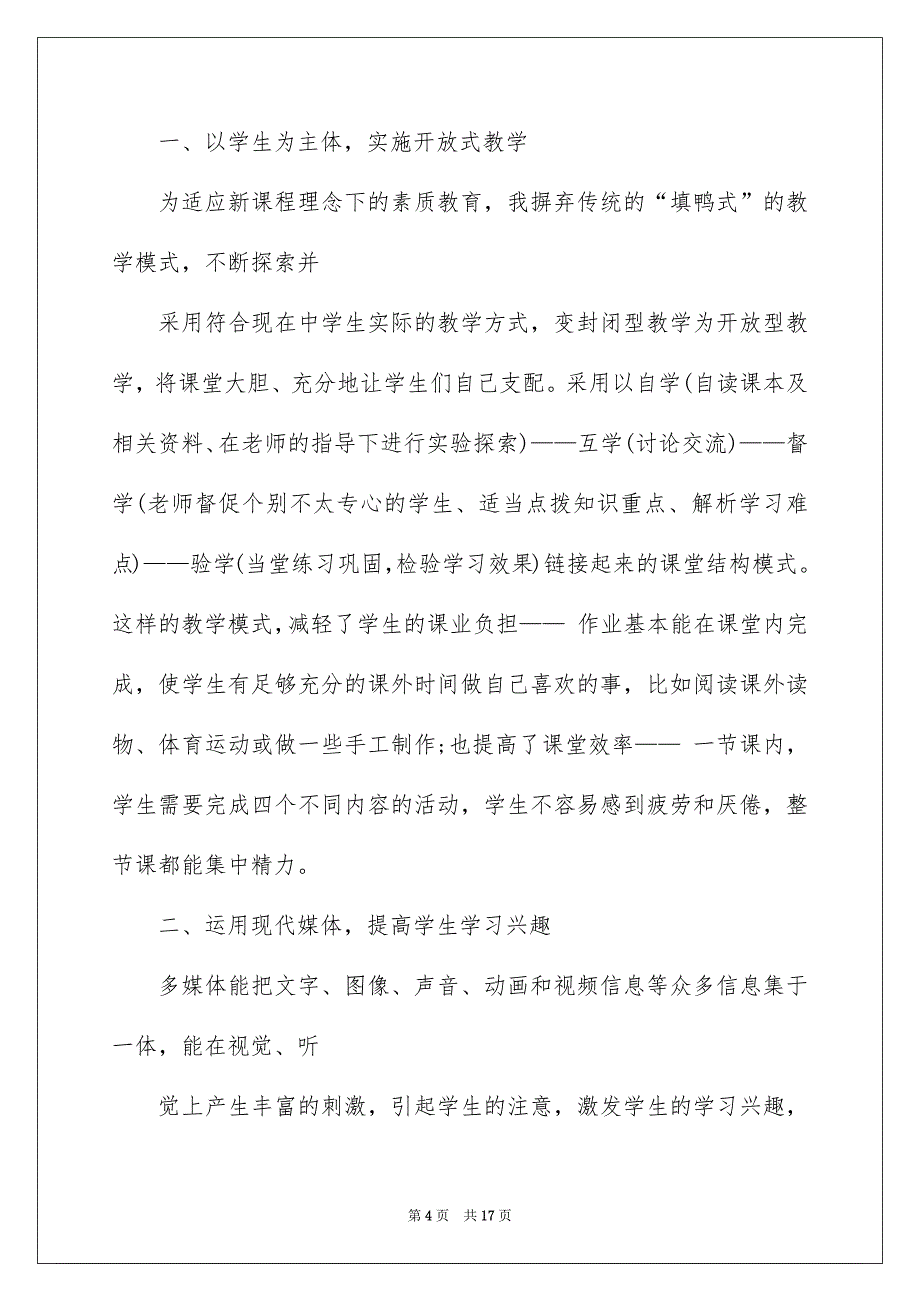 一、以学生为主体，实施开放式教学
为适应新课程理念下的素质教育，我摒弃传统的“填鸭式”的教
学模式，不断探索并
采用符合现在中学生实际的教学方式，变封闭型教学为开放型教
学，将课堂大胆、充分地让学生们自己支配。采用以自学(自读课本及
相关资料、在老师的指导下进行实验探索)——互学(讨论交流)——督
学(老师督促个别不太专心的学生、适当点拨知识重点、解析学习难
点)——验学(当堂练习巩固，检验学习效果)链接起来的课堂结构模式。
这样的教学模式，减轻了学生的课业负担—— 作业基本能在课堂内完
成，使学生有足够充分的课外时间做自己喜欢的事，比如阅读课外读
物、体育运动或做一些手工制作;也提高了课堂效率—— 一节课内，
学生需要完成四个不同内容的活动，学生不容易感到疲劳和厌倦，整
节课都能集中精力。
二、运用现代媒体，提高学生学习兴趣
多媒体能把文字、图像、声音、动画和视频信息等众多信息集于
一体，能在视觉、听
觉上产生丰富的刺激，引起学生的注意，激发学生的学习兴趣，
第 4 页 共 17 页